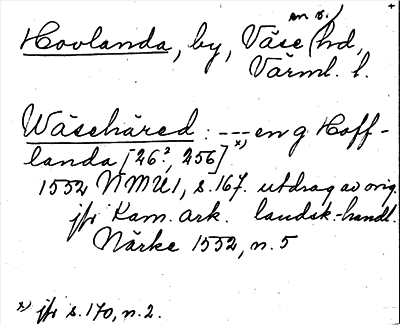 sn o.)
Hovlanda, by, Väse hd,
Värml. l.
Wäsehäred : --- en g Hoff-
landa [26?, 256] x)
1552 NMU1, s. 167. utdrag av orig.
jfr Kam. ark. landsk.-handl.
Närke 1552, n. 5
x) jfr s. 170, n. 2.